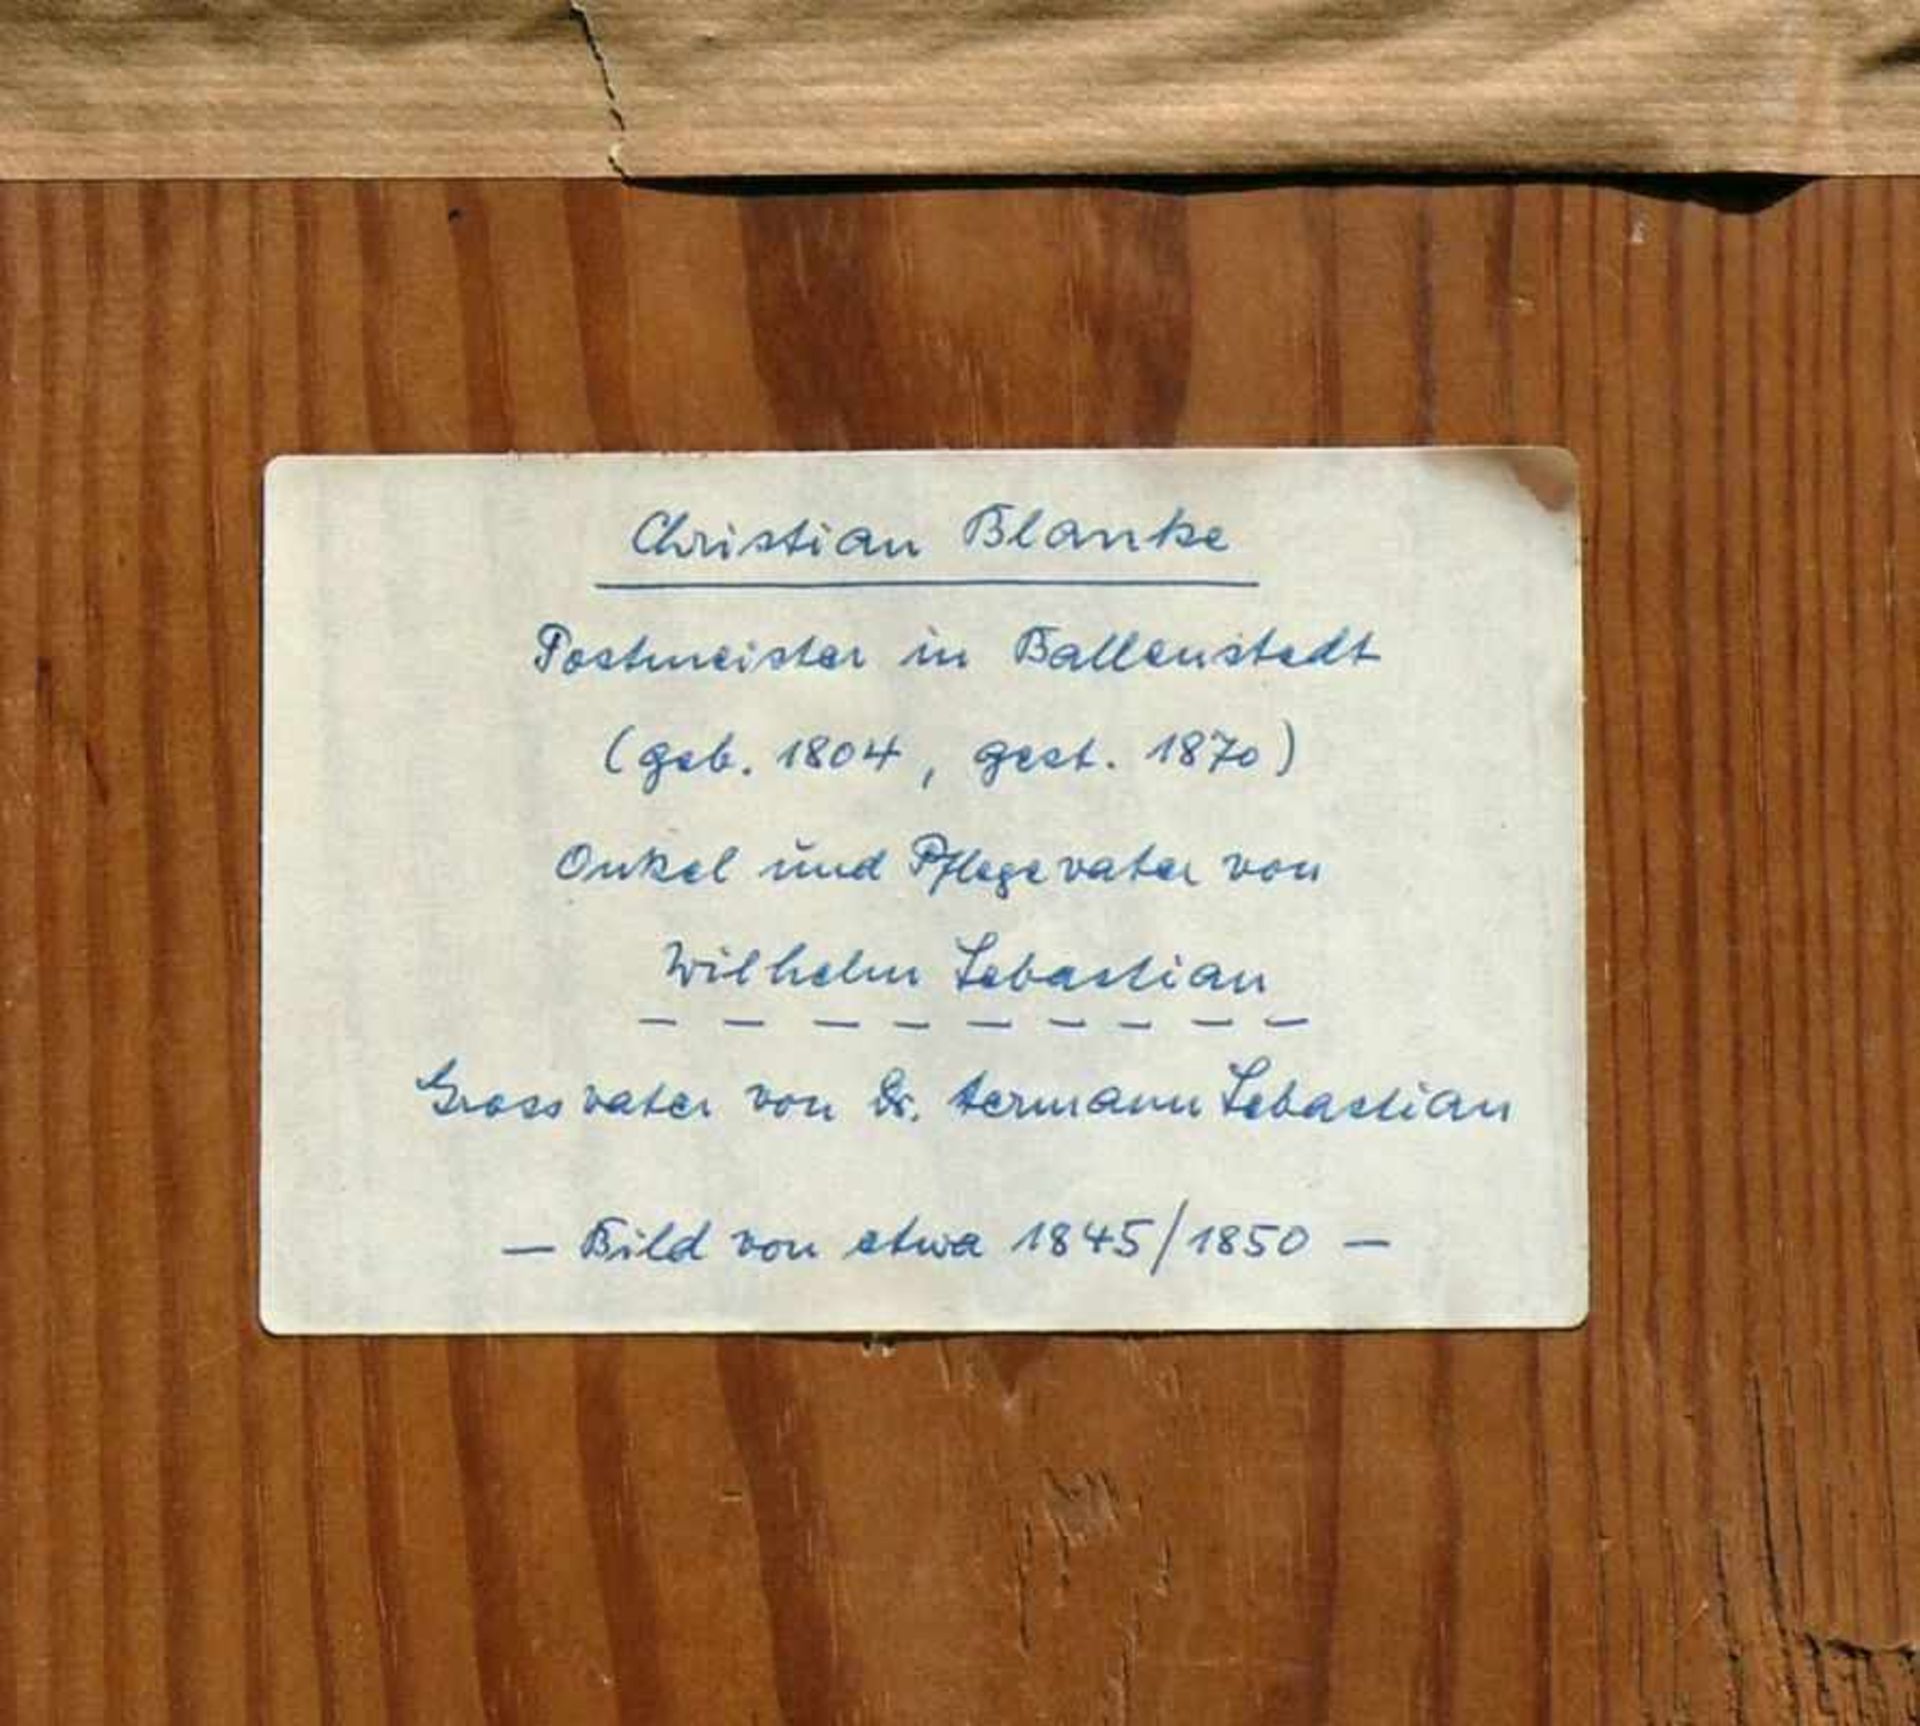 Christian Blanke
Postmeister in Ballenstedt
(geb. 1804, gest. 1870)
Onkel und Pflegevater von
Wilhelm Sebastian
Grossvater von Dr. Hermann Sebastian
— Bild von etwa 1845/1850 —